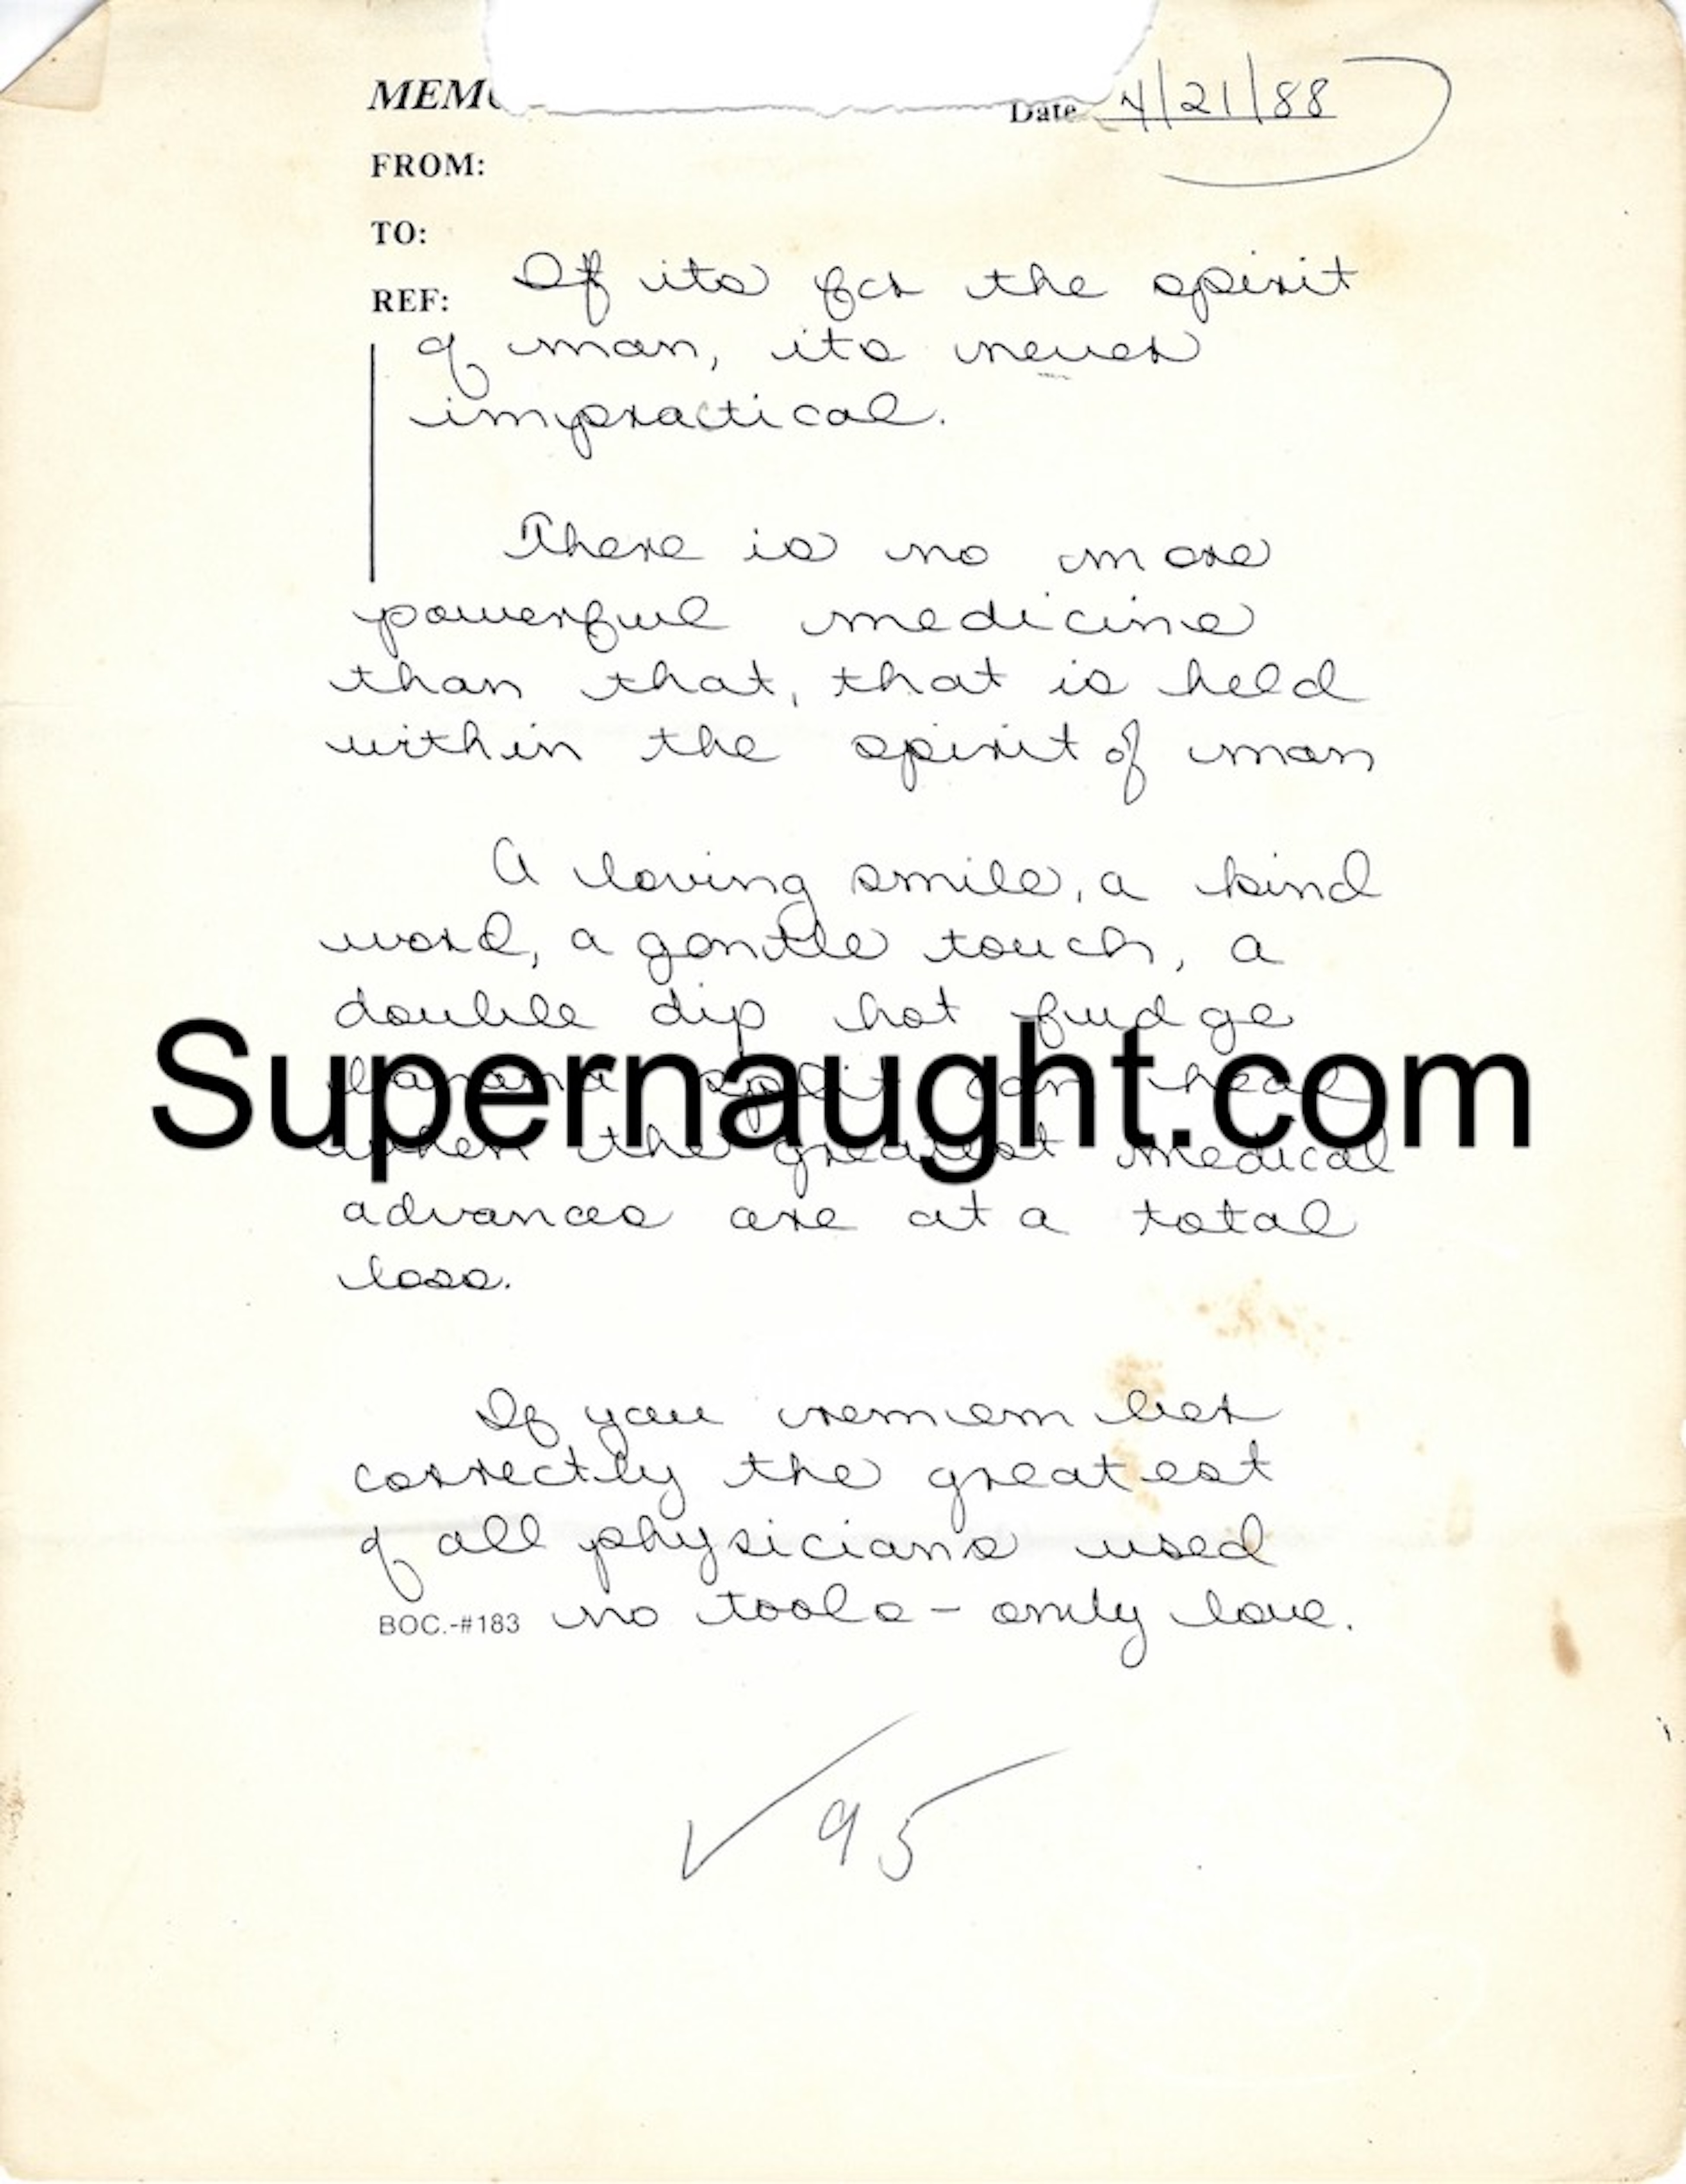 MEMO
Date 4/21/88
FROM:
TO:
REF:
If its for the spirit
of man, its never
impractical.
There is no more
powerful medicine
than that, that is held
within the spirit of man
A loving smile, a kind
word, a gentle touch, a
double dip hot fudge
banana split can heal
when the greatest medical
Supernaught.com
advances are at a total
loss.
If you rememember
correctly the greatest
of all physicians used
no tools - only love.
BOC.-#183
✓ 95